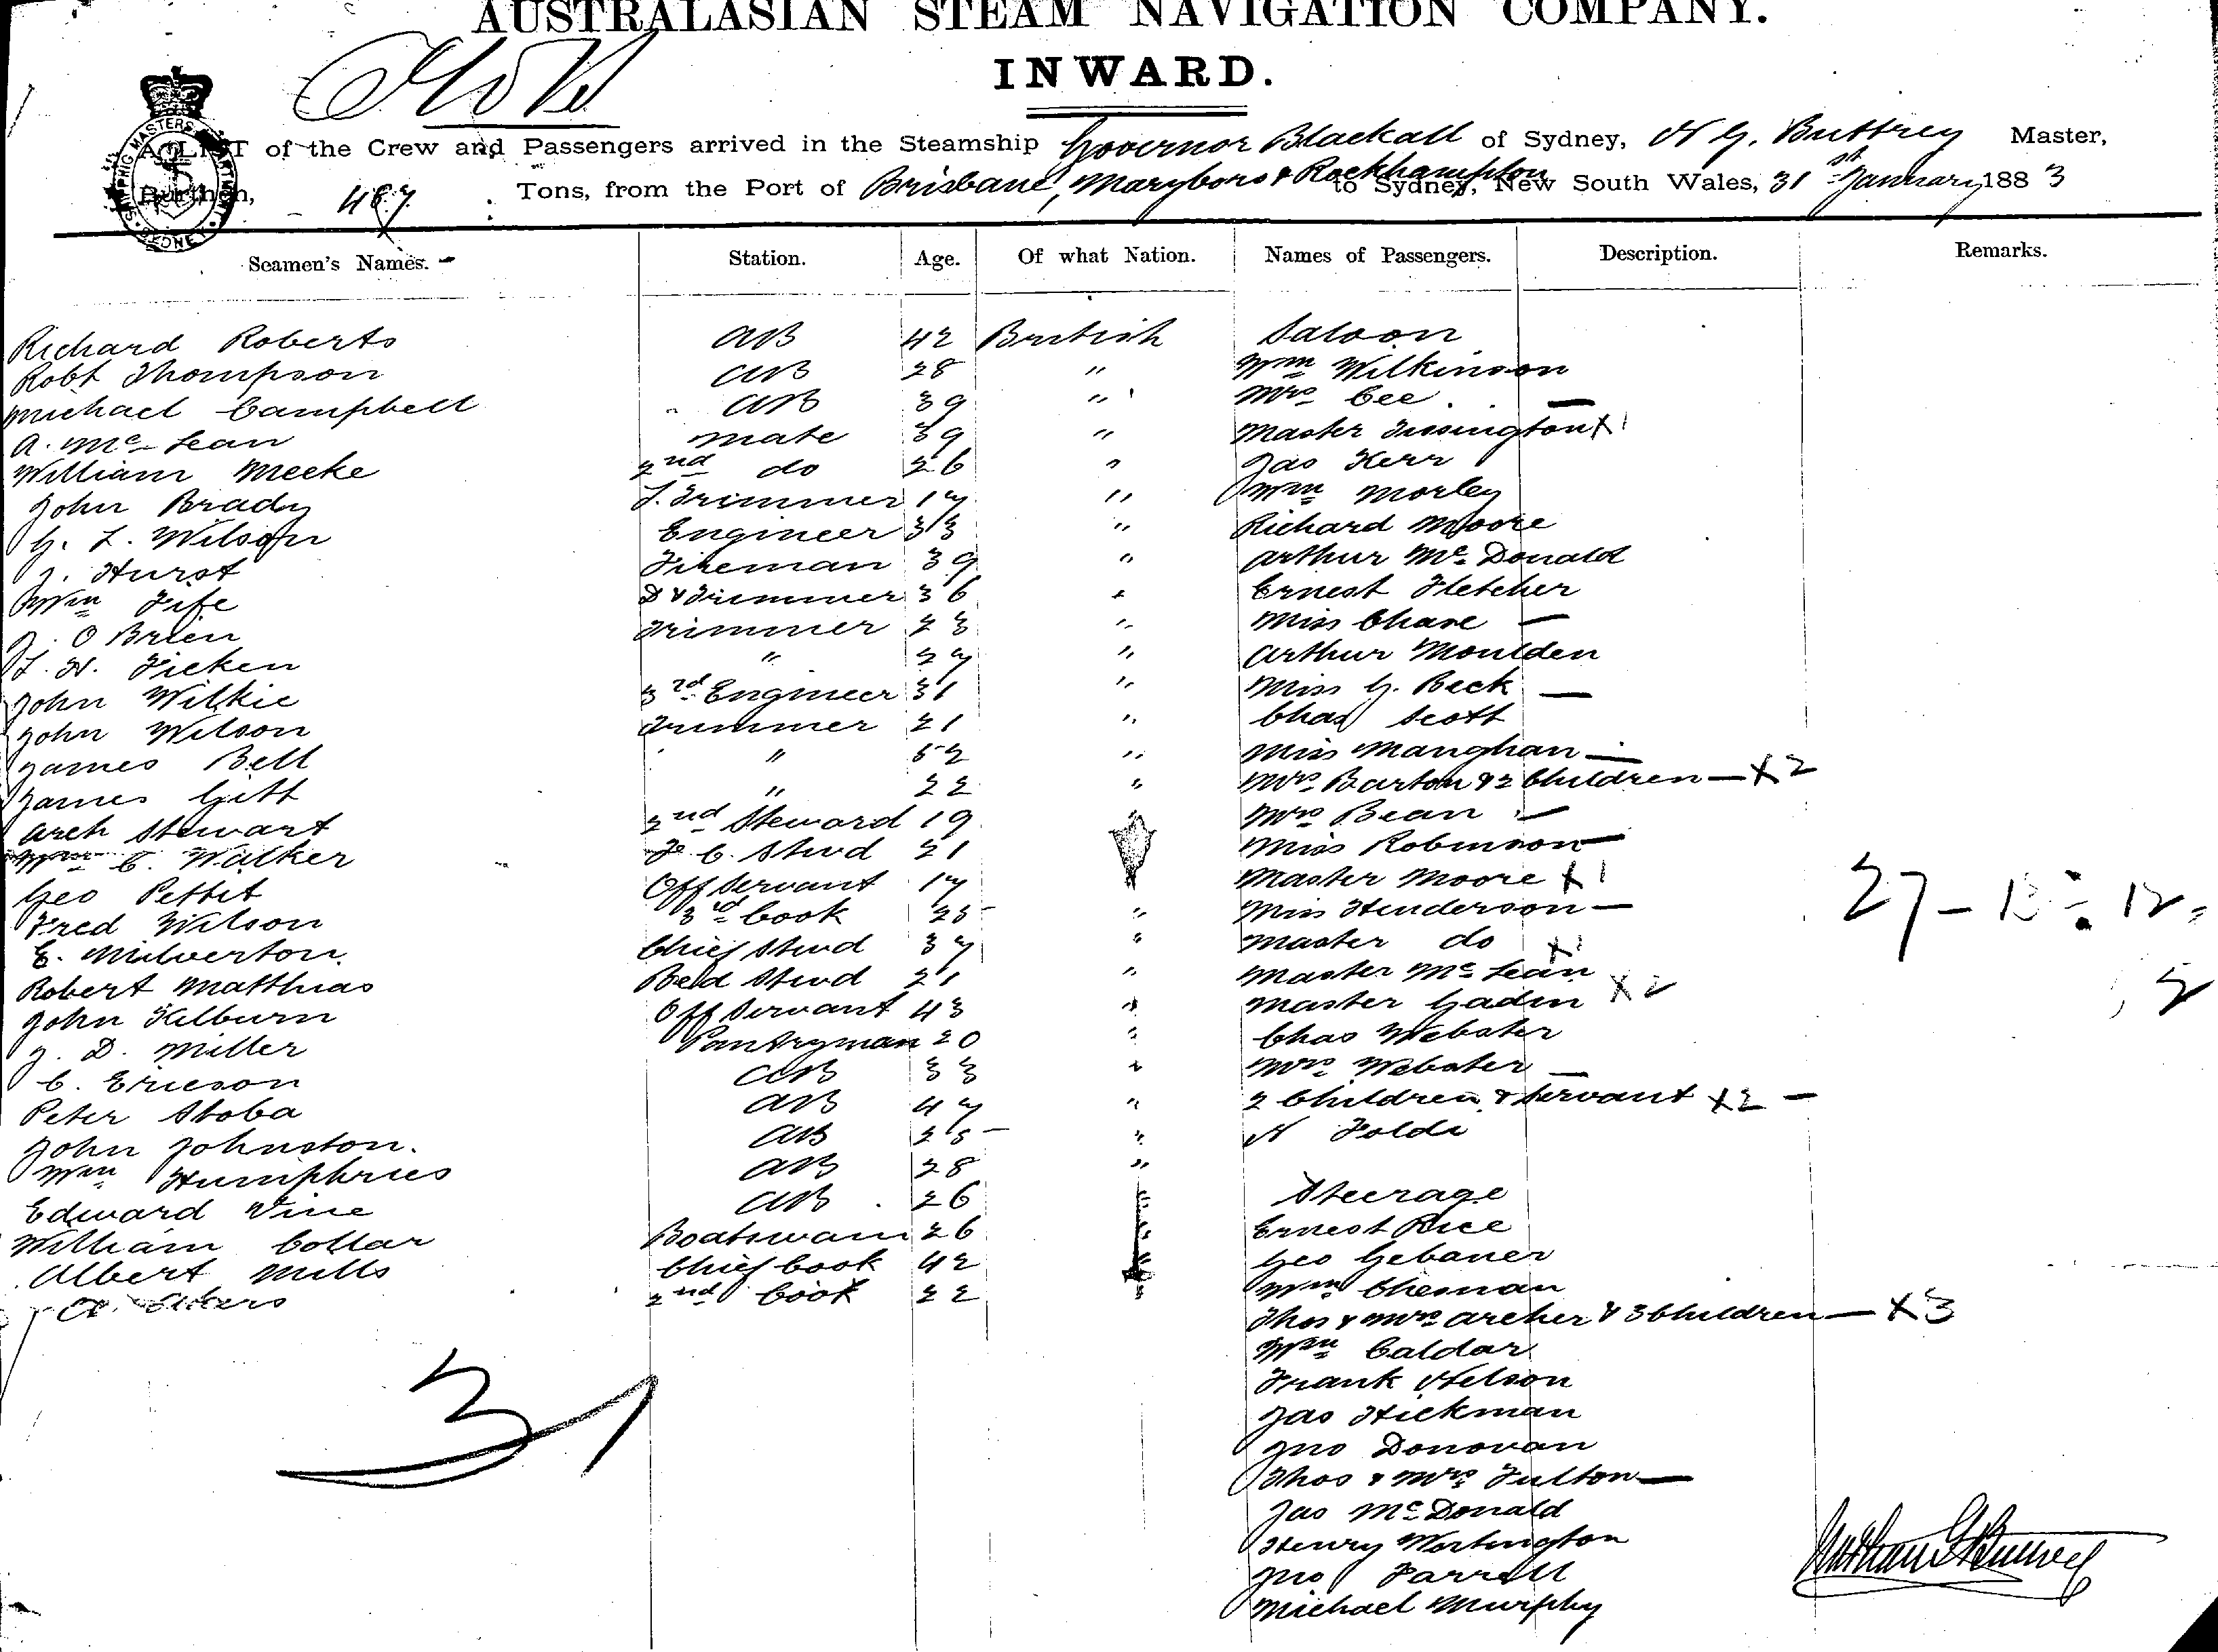 AUSTRALASIAN STEAM NAVIGATION COMPANY.
INWARD.
A LIST of the Crew and Passengers arrived in the Steamship Governor Blackall of Sydney, N G. Buttrey Master,
Burthen, 487 Tons, from the Port of Brisbane, Maryboro & Rockhampton to Sydney, New South Wales, 31st January 1883
Seamen's Names. Station. Age. Of what Nation. Names of Passengers. Description. Remarks.
Richard Roberts AB 42 British Saloon
Robt Thompson AB 28 " Wm Wilkinson
Michael Campbell AB 39 " Mrs Cee —
A. McLean Mate 39 " Master Tissington X1
William Meeke 2nd do 26 " Jas Kerr
John Brady T. Trimmer 17 " Wm Morley
G. L. Wilson Engineer 33 " Richard Moore
J. Hurst Fireman 39 " Arthur McDonald
Wm Fife D & Trimmer 36 " Ernest Fletcher
J. O Brien Trimmer 23 " Miss Chase —
T. H. Ficken " 27 " Arthur Moulden
John Wilkie 3rd Engineer 31 " Miss G. Beck —
John Wilson Trimmer 21 " Chas Scott
James Bell " 52 " Miss Manghan —
James Gitt " 22 " Mrs Barton & 2 Children — X2
Arch Stewart 2nd Steward 19 Mrs Bean —
Wm C. Walker F. C. Stwd 21 Miss Robinson —
Geo Pettit Off Servant 17 Master Moore X1
Fred Wilson 3rd Cook 25 " Miss Henderson —
E. Milverton Chief Stwd 37 " Master do X1
Robert Matthias Bed Stwd 21 " Master McLean
John Kelburn Off Servant 43 " Master Gadin X2
J. D. Miller Pantryman 20 " Chas Webster
C. Ericson AB 33 " Mrs Webster —
Peter Stoba AB 47 " 2 Children & Servant X2 —
John Johnston. AB 25 " N Foldi
Wm Humphries AB 28 "
Edward Vine AB 26 " Steerage
William Collar Boatswain 26 " Ernest Rice
Albert Mills Chief Cook 42 " Geo Gebauer
A. Akers 2nd Cook 22 " Wm Chesman
Thos & Mrs Archer & 3 Children — X3
Wm Caldar
Frank Nelson
Jas Hickman
Jno Donovan
Thos & Mrs Fulton —
Jas McDonald
Henry Wortington
Jno Farrell
Michael Murphy
27 — 13 = 12
31